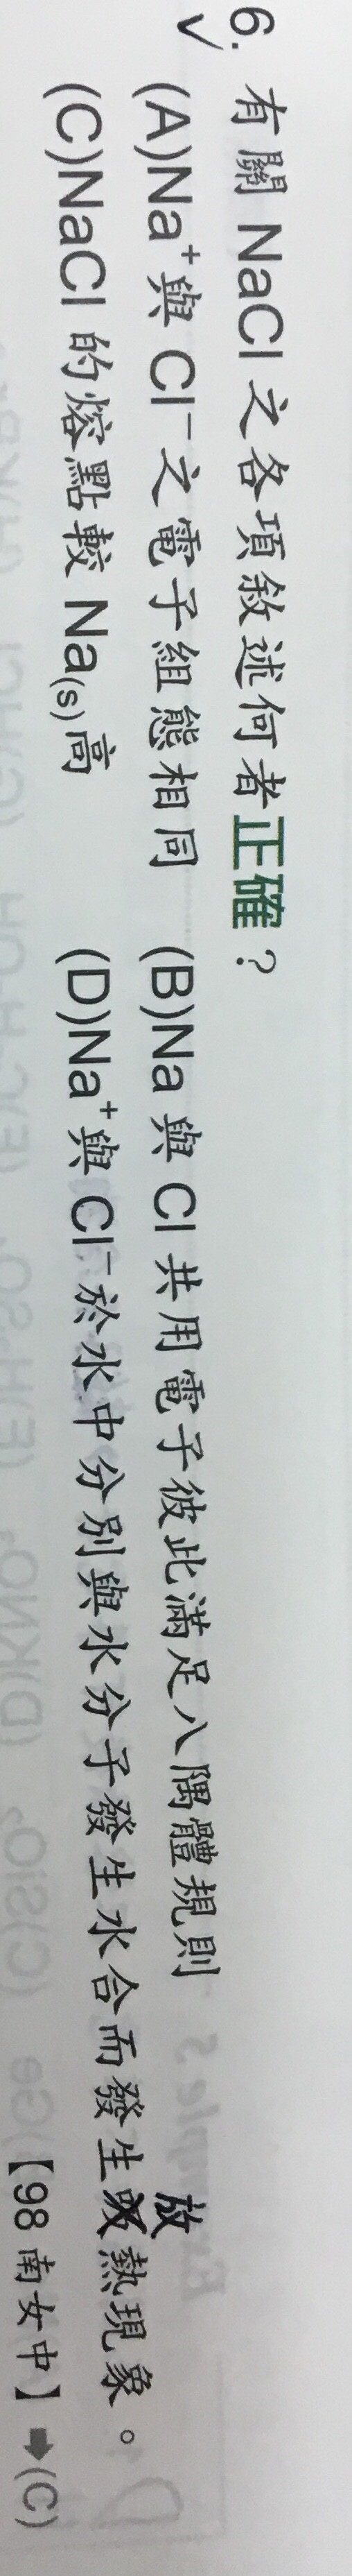 6. 有關 NaCl 之各項敘述何者正確？
(A)Na⁺與 Cl⁻之電子組態相同 (B)Na 與 Cl 共用電子彼此滿足八隅體規則
放
(C)NaCl 的熔點較 Na(s)高 (D)Na⁺與 Cl⁻於水中分別與水分子發生水合而發生吸熱現象。
【98 南女中】➡(C)